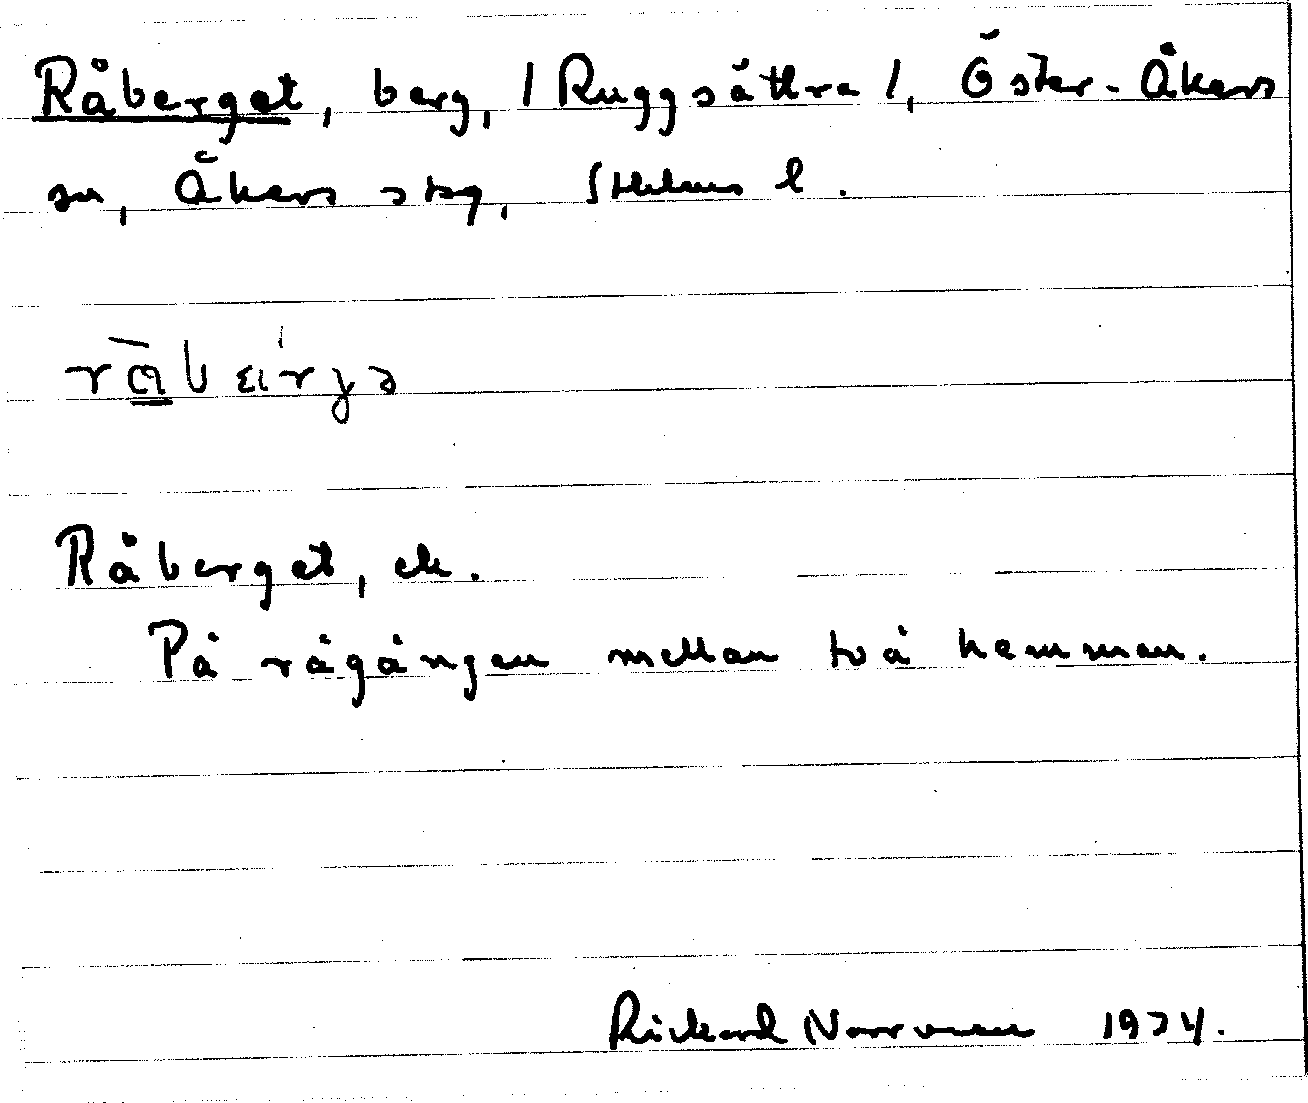 Råberget, berg, /Ruggsättra/, Öster-Åkers
sn, Åkers skg, Sthlms l.
Råberget, ek.
På rågången mellan två hemman.
Rickard Norrman 1934.